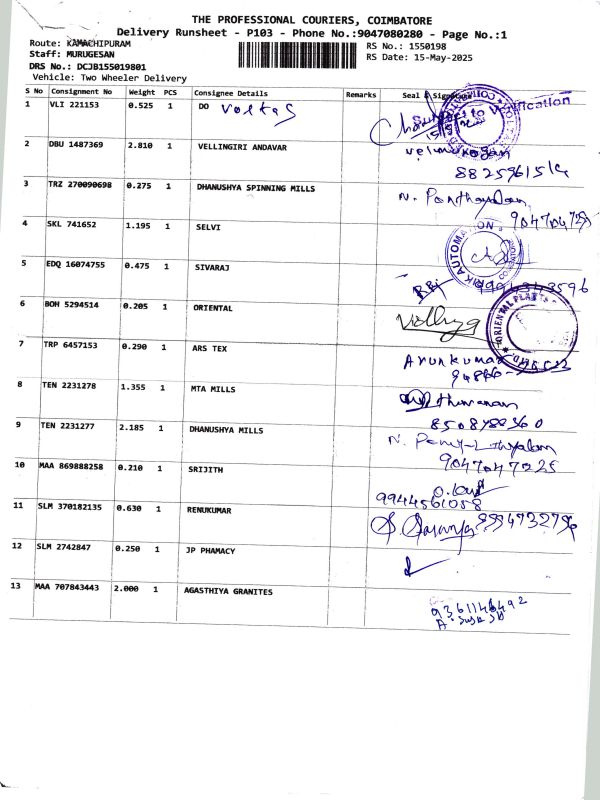 THE PROFESSIONAL COURIERS, COIMBATORE
Delivery Runsheet - P103 - Phone No.:9047080280 - Page No.:1
Route: KAMACHIPURAM
Staff: MURUGESAN
DRS No.: DCJB155019801
Vehicle: Two Wheeler Delivery
RS No.: 1550198
RS Date: 15-May-2025
S No Consignment No Weight PCS Consignee Details Remarks Seal & Signature
1 VLI 221153 0.525 1 DO Voltas
2 DBU 1487369 2.810 1 VELLINGIRI ANDAVAR
3 TRZ 270090698 0.275 1 DHANUSHYA SPINNING MILLS
4 SKL 741652 1.195 1 SELVI
5 EDQ 16074755 0.475 1 SIVARAJ
6 BOH 5294514 0.205 1 ORIENTAL
7 TRP 6457153 0.290 1 ARS TEX Arunkumar
8 TEN 2231278 1.355 1 MTA MILLS
9 TEN 2231277 2.185 1 DHANUSHYA MILLS
9047047225
10 MAA 869888258 0.210 1 SRIJITH
9944561058
11 SLM 370182135 0.630 1 RENUKUMAR
12 SLM 2742847 0.250 1 JP PHAMACY
13 MAA 707843443 2.000 1 AGASTHIYA GRANITES